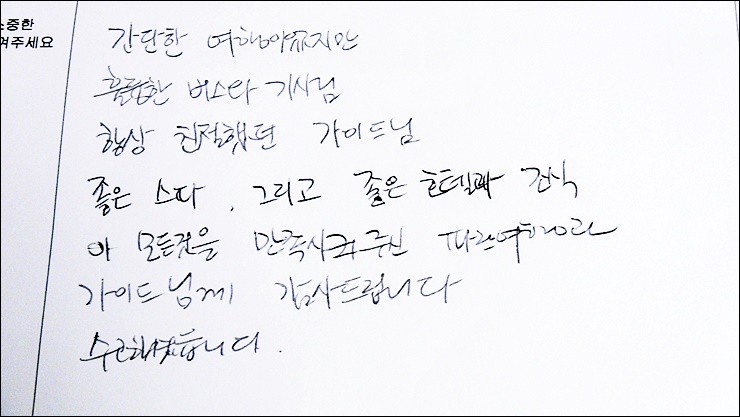 소중한
여주세요
간단한 여행이였지만
훌륭한 버스와 기사님
항상 친절했던 가이드님
좋은 스파, 그리고 좋은 호텔과 간식
이 모든것을 만족시켜주신 파란여행과
가이드님께 감사드립니다
수고하셨습니다.